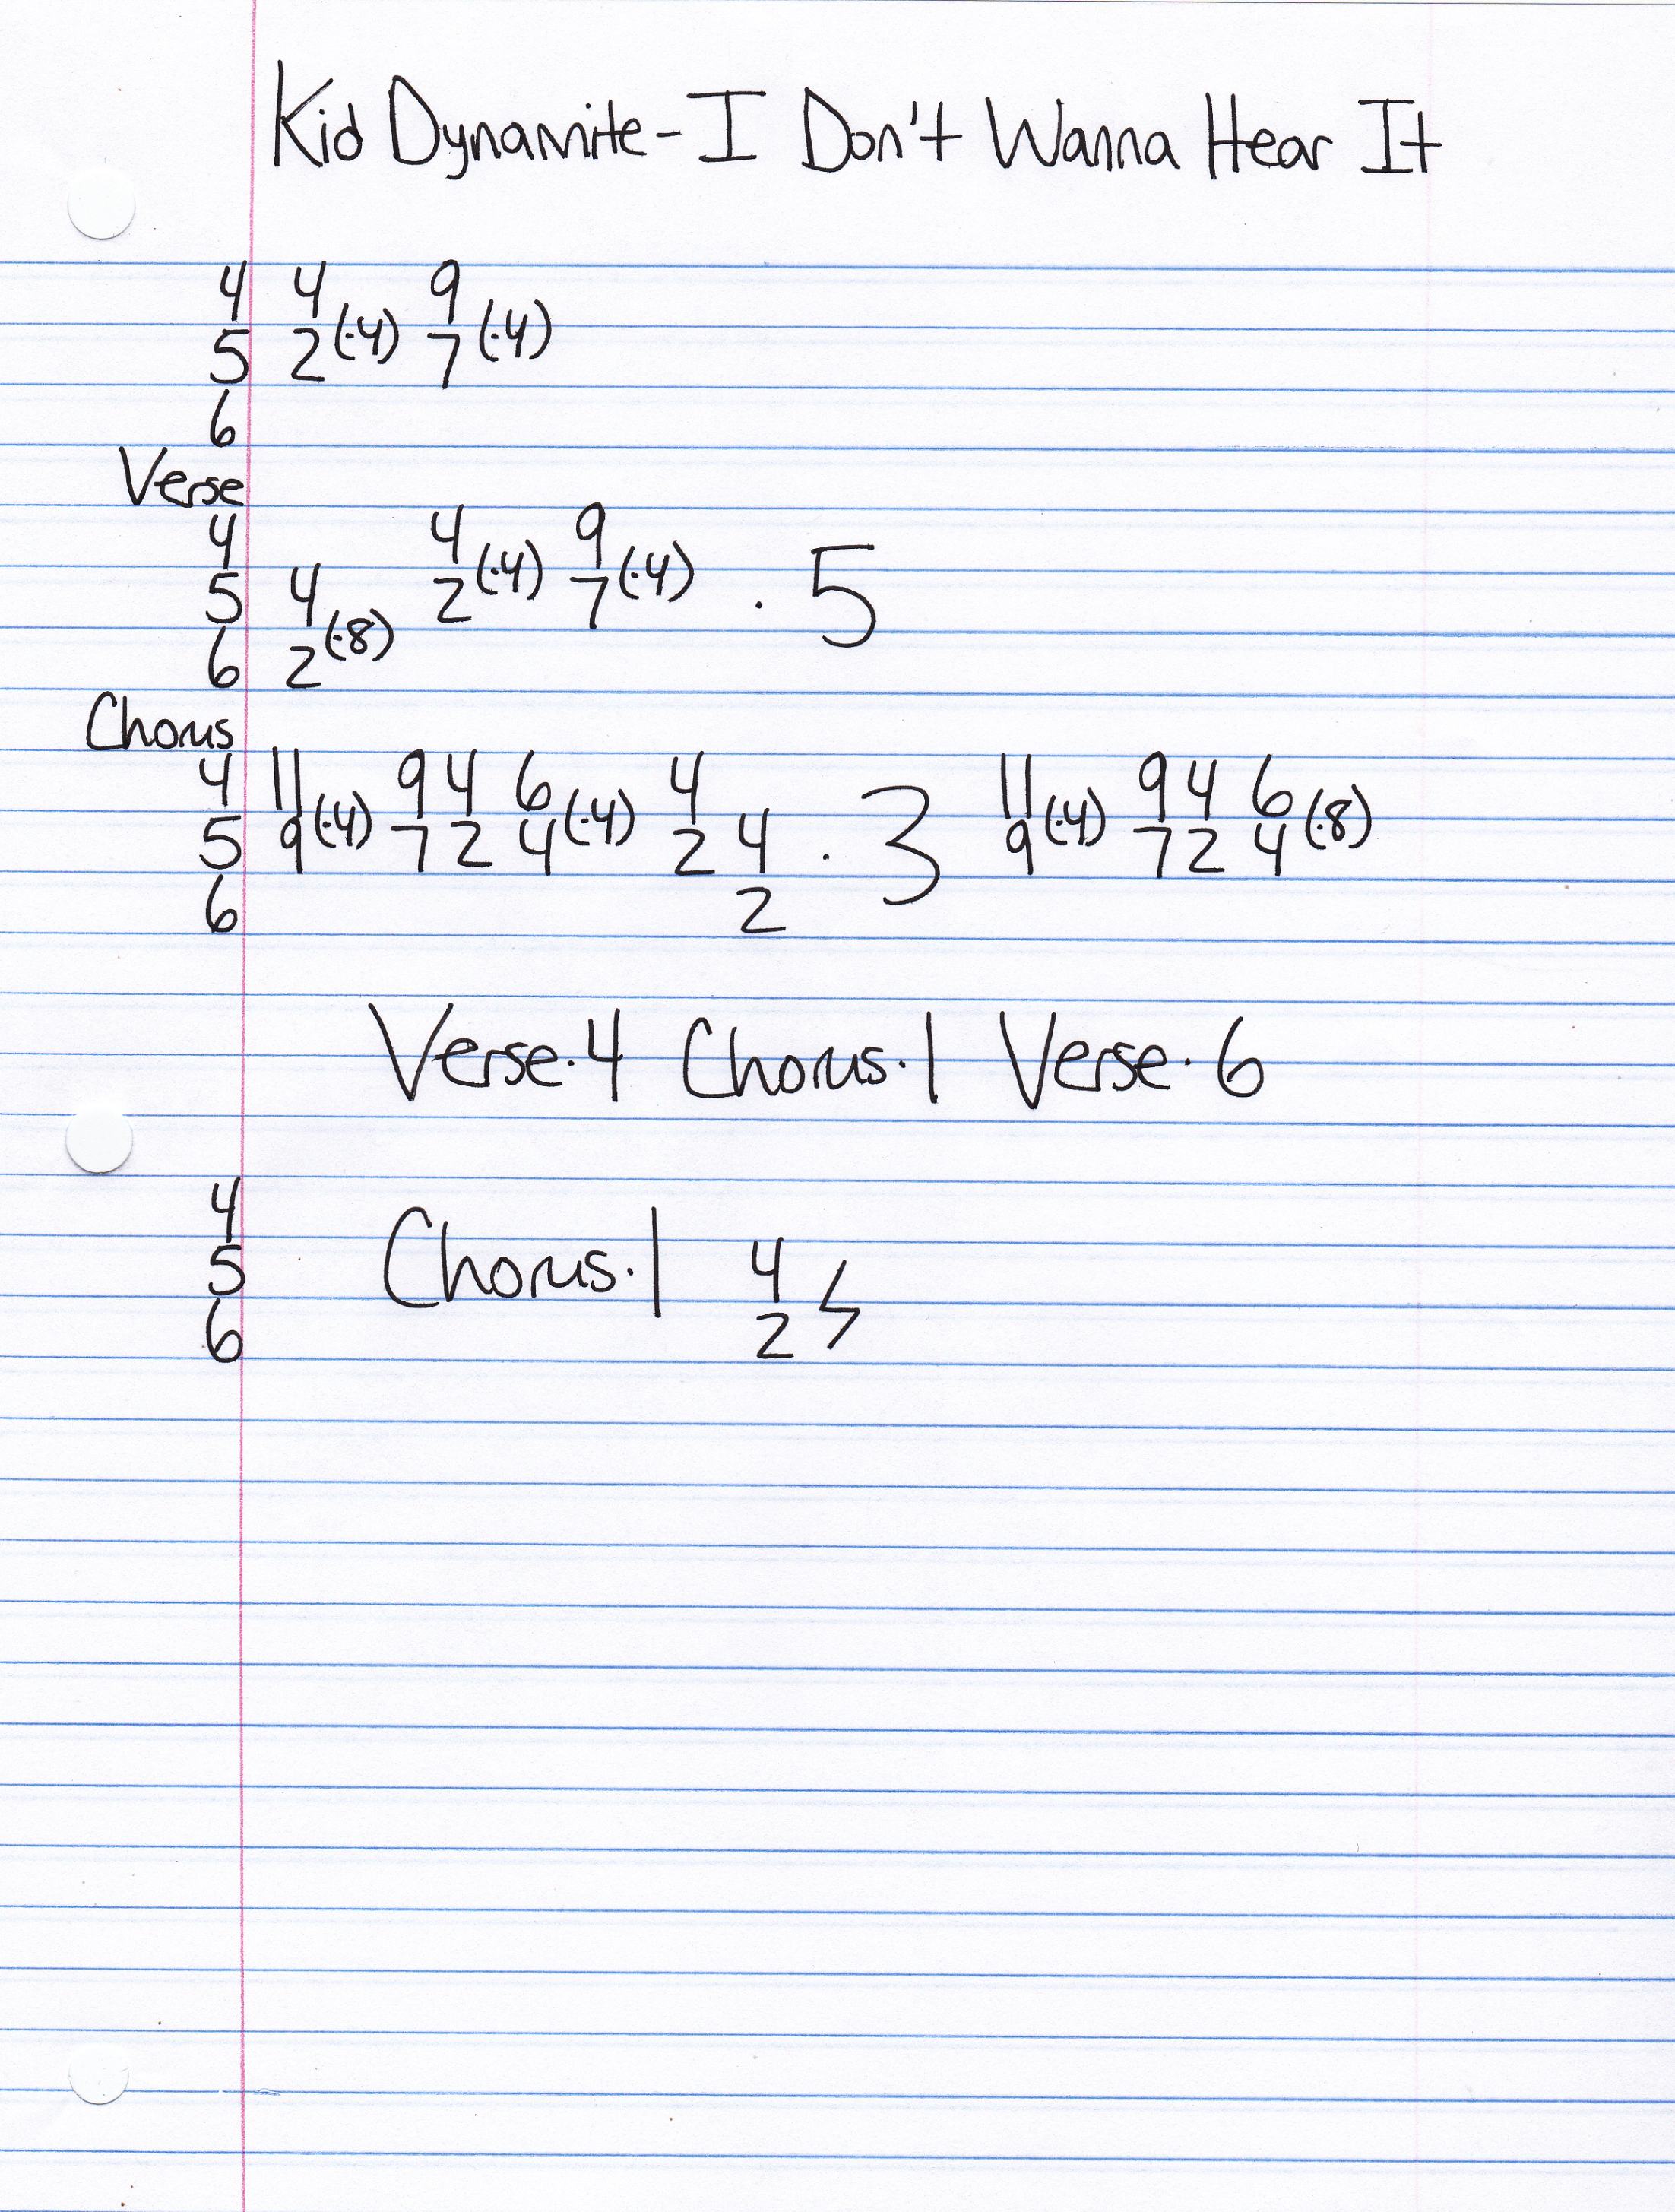 Kid Dynamite - I Don't Wanna Hear It
4 4 9
5 2(·4) 7(·4)
6
Verse
4 4 9
5 4 2(·4) 7(·4) · 5
6 2(·8)
Chorus
4 11 9 4 6 4 11 9 4 6
5 9(·4) 7 2 4(·4) 2 4 · 3 9(·4) 7 2 4(·8)
6 2
Verse·4 Chorus·1 Verse·6
4
5 Chorus·1 4
6 2